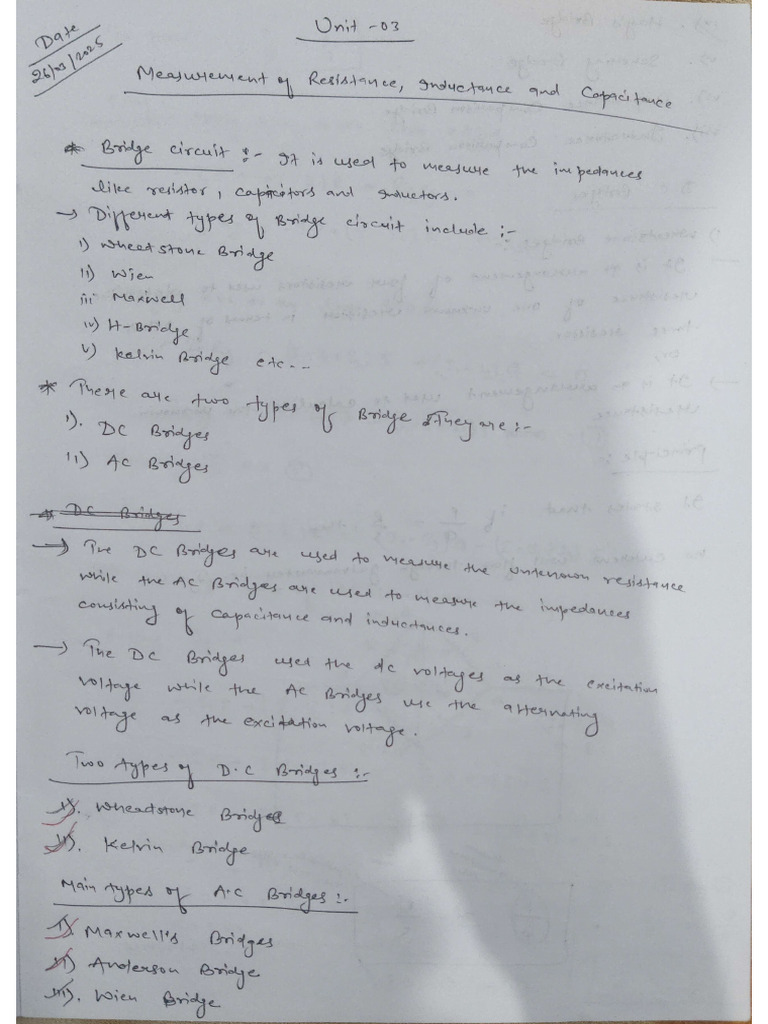 Date
26/03/2025
Unit -03
Measurement of Resistance, Inductance and Capacitance
* Bridge circuit :- It is used to measure the impedances
like resistor, capacitors and inductors.
→ Different types of Bridge circuit include :-
i) Wheatstone Bridge
ii) Wien
iii Maxwell
iv) H-Bridge.
v) Kelvin Bridge etc...
* There are two types of Bridge. They are :-
i). DC Bridges
ii) AC Bridges
* DC Bridges
→ The DC Bridges are used to measure the unknown resistance
while the AC Bridges are used to measure the impedances
consisting of capacitance and inductances.
→ The DC Bridges used the dc voltages as the excitation
voltage while the AC Bridges use the alternating
voltage as the excitation voltage.
Two types of D.C Bridges :-
i). Wheadstone Bridges
ii). Kelvin Bridge
Main types of A.C Bridges :-
i) Maxwell's Bridges
ii) Anderson Bridge
iii). Wien Bridge